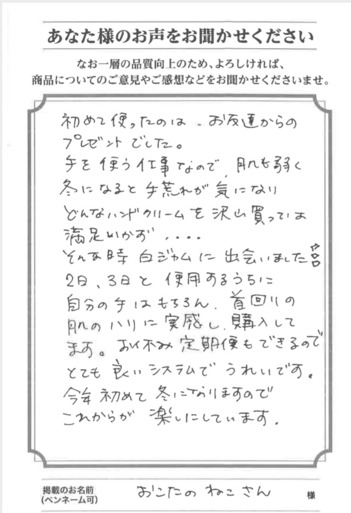 あなた様のお声をお聞かせください
なお一層の品質向上のため、よろしければ、
商品についてのご意見やご感想などをお聞かせくださいませ。
初めて使ったのは、お友達からの
プレゼントでした。
手を使う仕事なので、肌も弱く
冬になると手荒れが気になり
どんなハンドクリームを沢山買っては
満足いかず....
そんな時 白ジャムに出会いました
2日、3日と使用するうちに
自分の手はもちろん、首回りの
肌のハリに実感し、購入して
ます。お休み定期便もできるので
とても良いシステムでうれしいです。
今年初めて冬になりますので
これからが楽しにしています。
掲載のお名前
(ペンネーム可)
おこたのねこさん
様